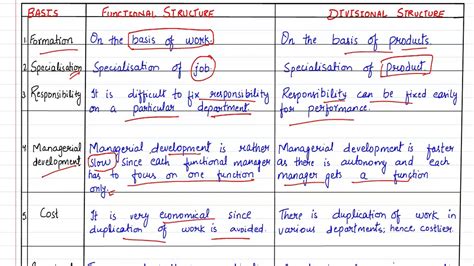 BASIS FUNCTIONAL STRUCTURE DIVISIONAL STRUCTURE
1 Formation On the basis of work. On the basis of products.
2 Specialisation Specialisation of job Specialisation of product.
3 Responsibility It is difficult to fix responsibility Responsibility can be fixed easily
on a particular department. for performance.
4 Managerial Managerial development is rather Managerial development is faster
development slow since each functional manager as there is autonomy and each
has to focus on one function manager gets a function
only.
5 Cost It is very economical since There is duplication of work in
duplication of work is avoided. various departments; hence costlier.